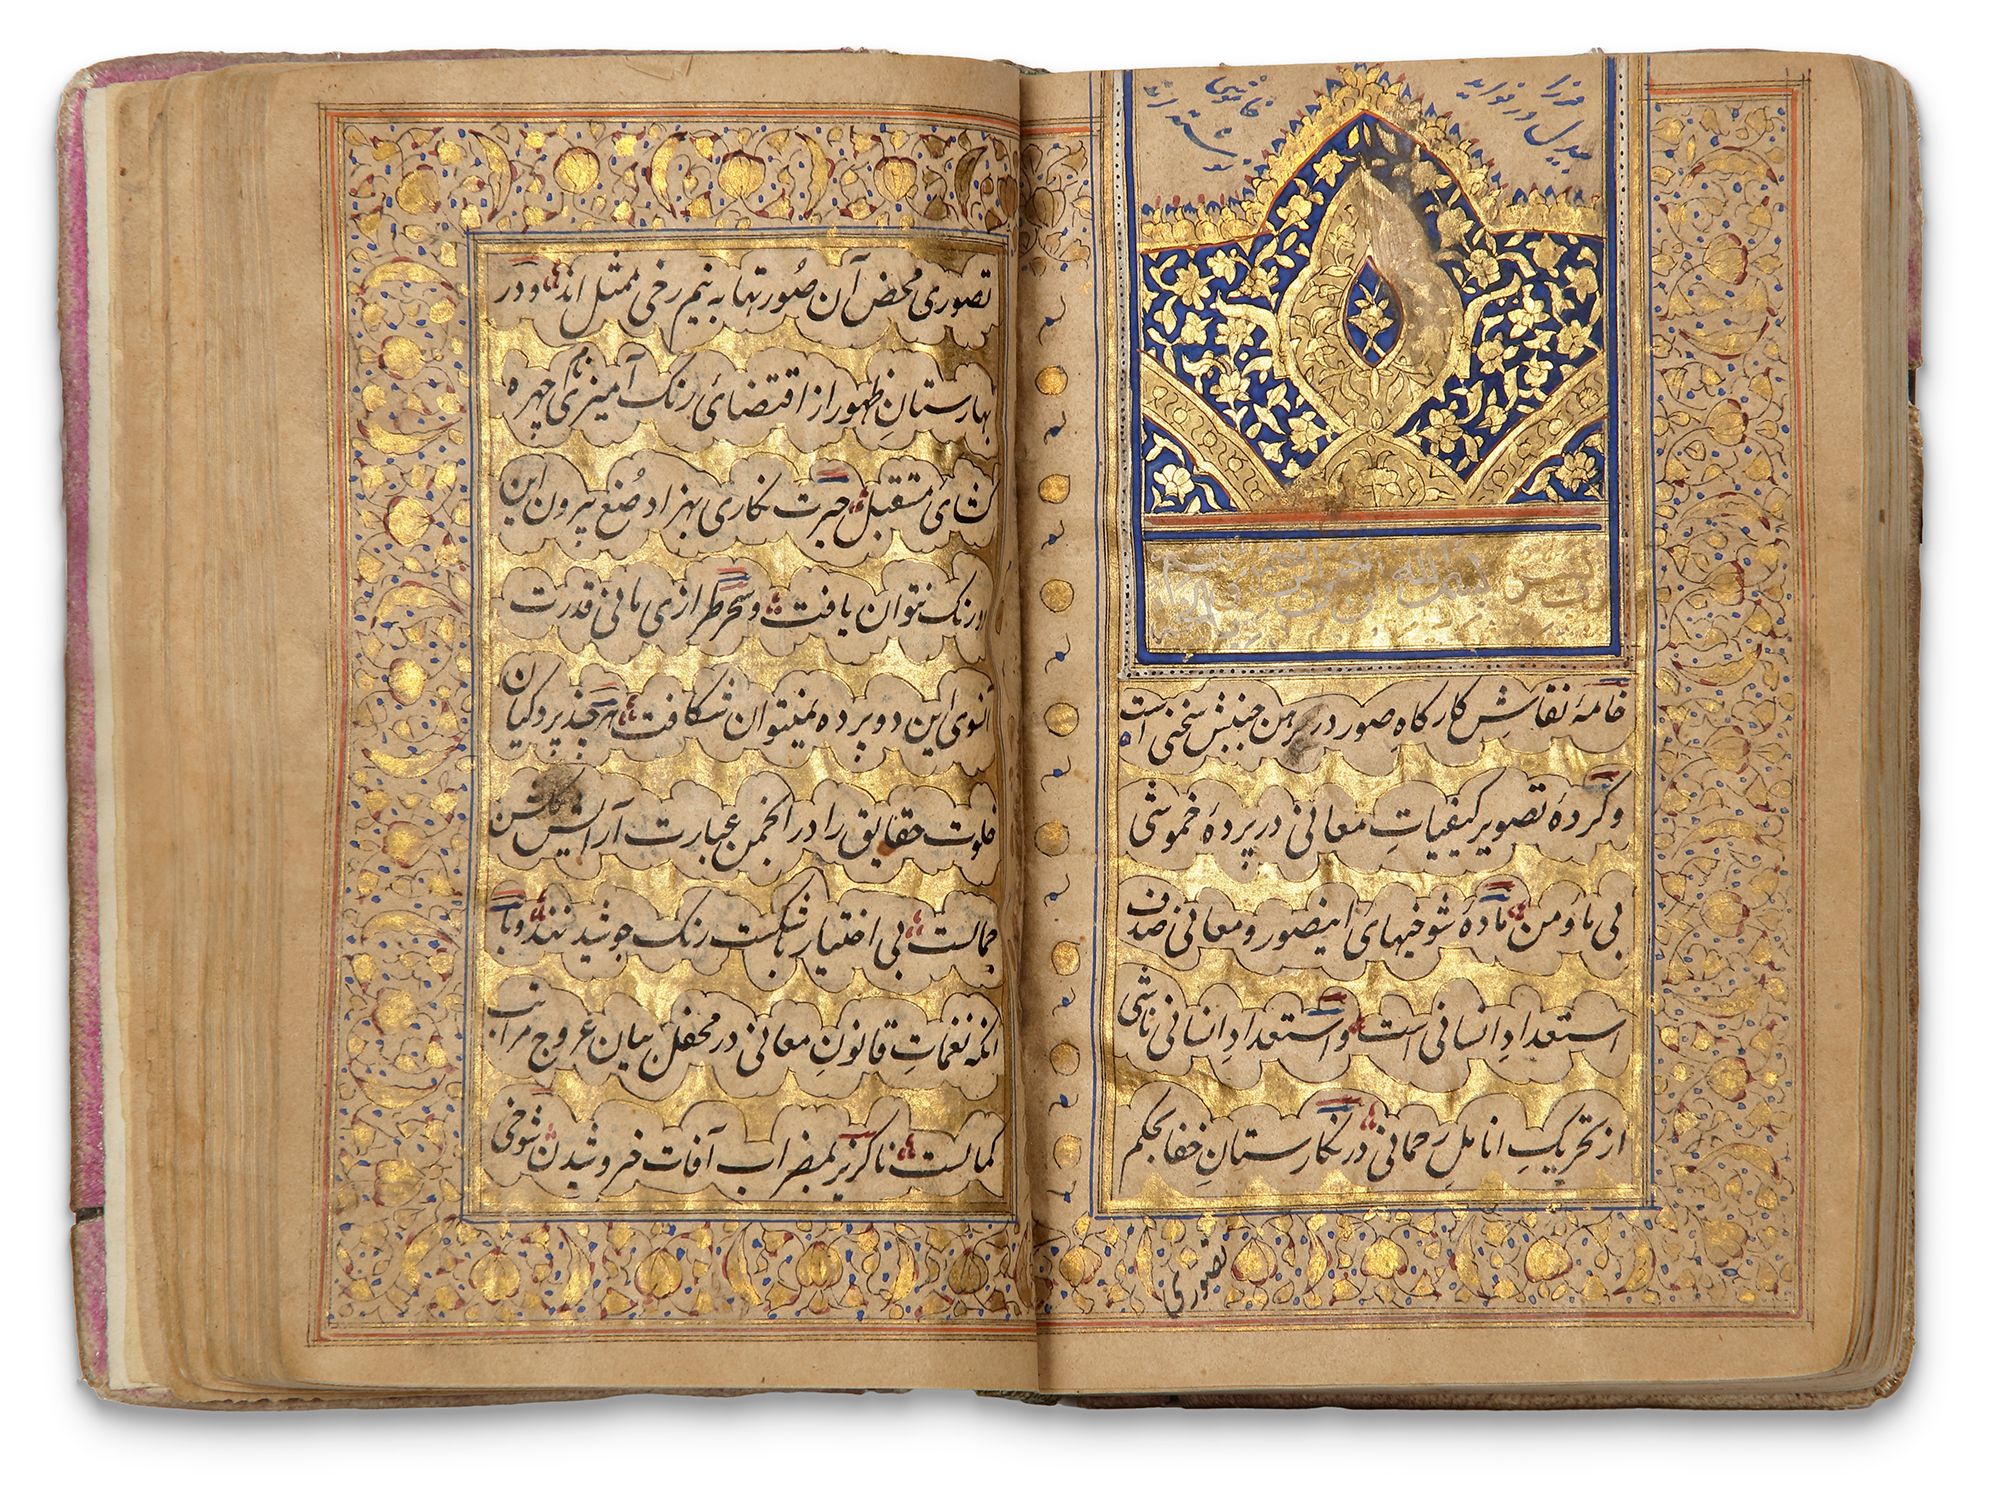 مرزا
بیدل در فواید
خاموشی
نوشته اند
بسم الله الرحمن الرحیم
خامهٔ نقاشِ کارگاهِ صور در رهن جنبش سخنی است
و گردهٔ تصویر کیفیاتِ معانی در پردهٔ خموشی
بی ما و من مادهٔ شوخیهای اینصور و معانی صدف
استعدادِ انسانی است و استعدادِ انسانی ناشی
از تحریکِ اناملِ رحمانی در نگارستانِ خفا بحکم
تصوری
تصوری محض آن صورتها به نیم رخی ممثل اند و در
بهارستانِ ظهور از اقتضای رنگ آمیزی چهره
کشای مستقبل حیرت نگاری بهزاد صُنع بیرون این
دو رنگ نتوان یافت و سحر طرازی مانی قدرت
آنسوی این دو پرده نمیتوان شکافت هر چند پردکیان
خلوت حقایق را در انجمن عبارت آرایش
حمالست بی اختیار با شکست رنگ جوشیدنند و با
آنکه نغماتِ قانونِ معانی در محفل بیان عروج مراتب
کمالست ناگزیر بمضراب آفات خروشیدن شوخی